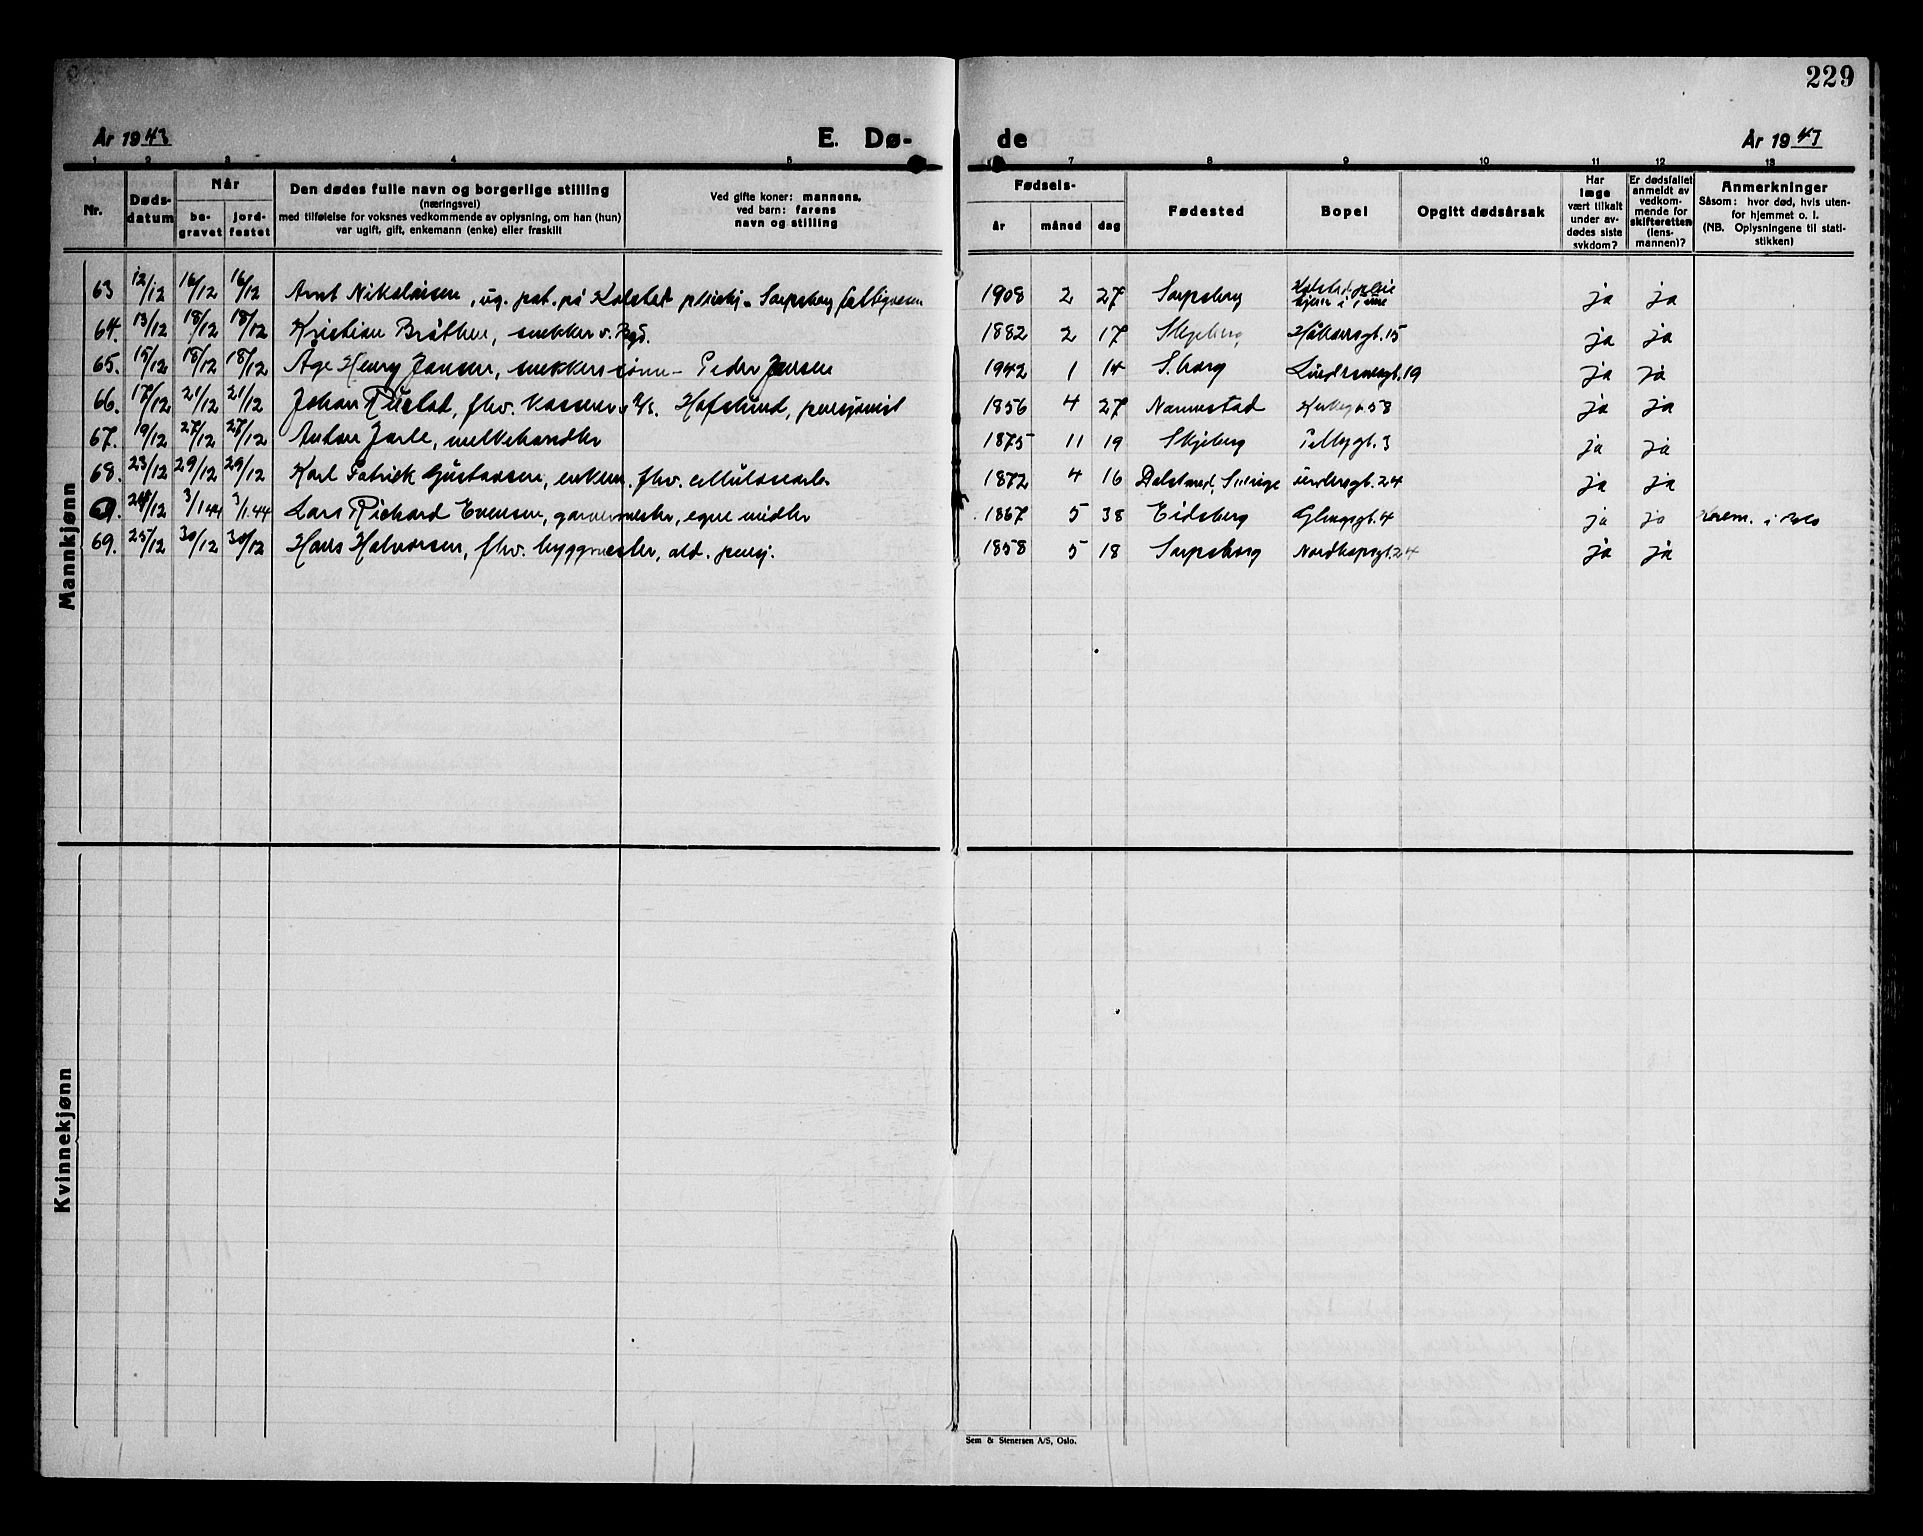 229
År 1943 E. Dø- de År 1943
1 2 3 4 5 7 8 9 10 11 12 13
Nr. Døds-datum Når be-gravet jord-festet Den dødes fulle navn og borgerlige stilling (næringsvei) med tilføielse for voksnes vedkommende av oplysning, om han (hun) var ugift, gift, enkemann (enke) eller fraskilt Ved gifte koner: mannens, ved barn: farens navn og stilling Fødsels- år måned dag Fødested Bopel Opgitt dødsårsak Har læge vært tilkalt under av-dødes siste sykdom? Er dødsfallet anmeldt av vedkom-mende for skifteretten (lens-mannen)? Anmerkninger Såsom: hvor død, hvis uten-for hjemmet o. l. (NB. Oplysningene til stati-stikken)
Mannkjønn
63 12/12 16/12 16/12 Arnt Nikolaisen, ug. pat. på Kolstad pleiehj. Sarpsborg fattigvesen 1908 2 27 Sarpsborg Kolstad pleie hjem i ja ja
64. 13/12 18/12 18/12 Kristian Bråthen, snekker v. Bgd. 1882 2 17 Skjeberg Håkonsgt. 15 ja ja
65. 15/12 18/12 18/12 Åge Henry Jansen, snekkers sønn - Peder Jensen 1942 1 14 S.borg 19 ja ja
66. 17/12 21/12 21/12 Johan Rustad, fhv. kasserer v A/S. Hafslund, pensjonist 1856 4 27 Navnestad Kirkegt. 58 ja ja
67. 19/12 27/12 27/12 Anton Jarle, melkehandler 1875 11 19 Skjeberg 3 ja ja
68. 23/12 29/12 29/12 Karl Patrick Gustavsen, enkem. fhv. cellulosearb. 1872 4 16 Dalsland, Sverige 24 ja ja
24/12 3/1 44 3/1.44 Lars Richard Evensen, garvermester, egne midler 1867 5 38 Eidsberg Glengsgt. 4 ja ja Krem. i Oslo
69. 25/12 30/12 30/12 Hans Halvorsen, fhv. byggmester, ald. pensj. 1858 5 18 Sarpsborg Nordkapsgt. 24 ja ja
Kvinnekjønn
Sem & Stenersen A/S, Oslo.